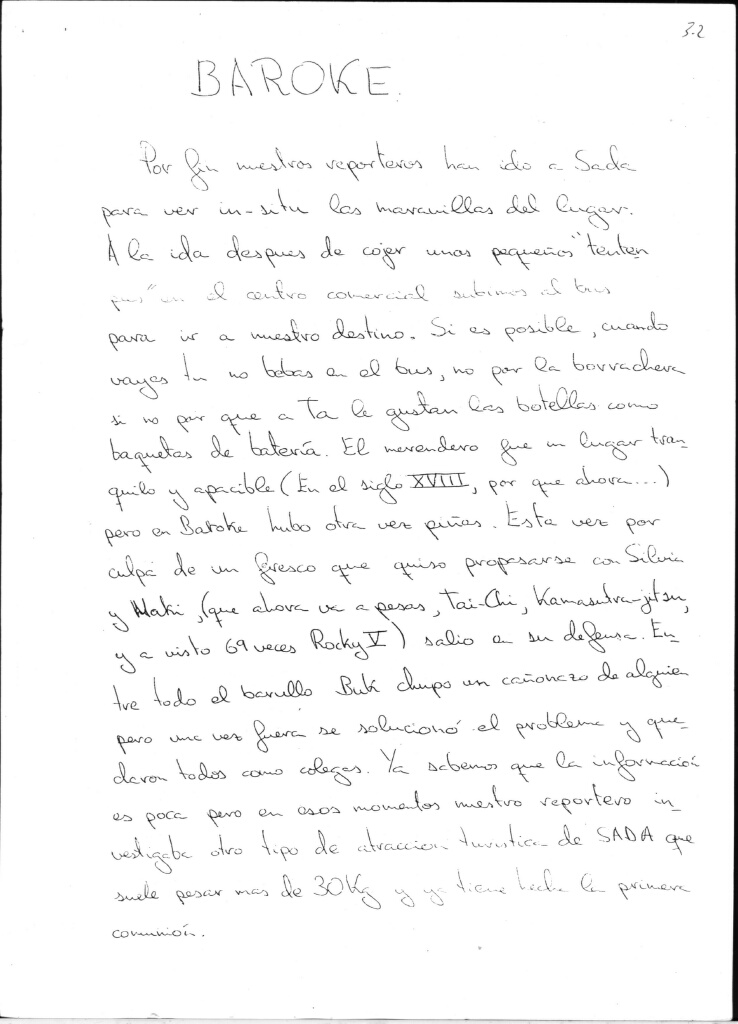 3-2
BAROKE.
Por fin nuestros reporteros han ido a Sada
para ver in-situ las maravillas del lugar.
A la ida despues de cojer unos pequeños "tenten
pies" en el centro comercial subimos al bus
para ir a nuestro destino. Si es posible, cuando
vayas tu no bebas en el bus, no por la borrachera
si no por que a Ta le gustan las botellas como
baquetas de batería. El merendero fue un lugar tran-
quilo y apacible (En el siglo XVIII, por que ahora...)
pero en Baroke hubo otra vez piñas. Esta vez por
culpa de un fresco que quiso propasarse con Silvia
y Maki, (que ahora va a pesas, Tai-Chi, Kamasutra-jitsu,
y a visto 69 veces Rocky V) salio en su defensa. En
tre todo el barullo Buk chupo un cañonazo de alguien
pero una vez fuera se solucionó el problema y que-
daron todos como colegas. Ya sabemos que la información
es poca pero en esos momentos nuestro reportero in-
vestigaba otro tipo de atraccion turistica de SADA que
suele pesar mas de 30Kg y ya tiene hecha la primera
comunión.